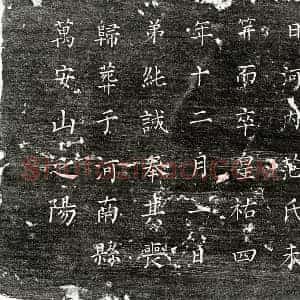 日河內范氏未
笄而卒皇祐四
年十二月一日
弟純誠奉其喪
歸葬于河南縣
萬安山之陽